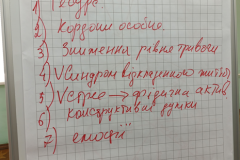 1) Ресурс
2) Кордони особисті
3) Зниження рівня тривоги
4) V Синдром відкладеного життя
5) V стрес → фізична актив.
6) конструктивні думки
7) емоції